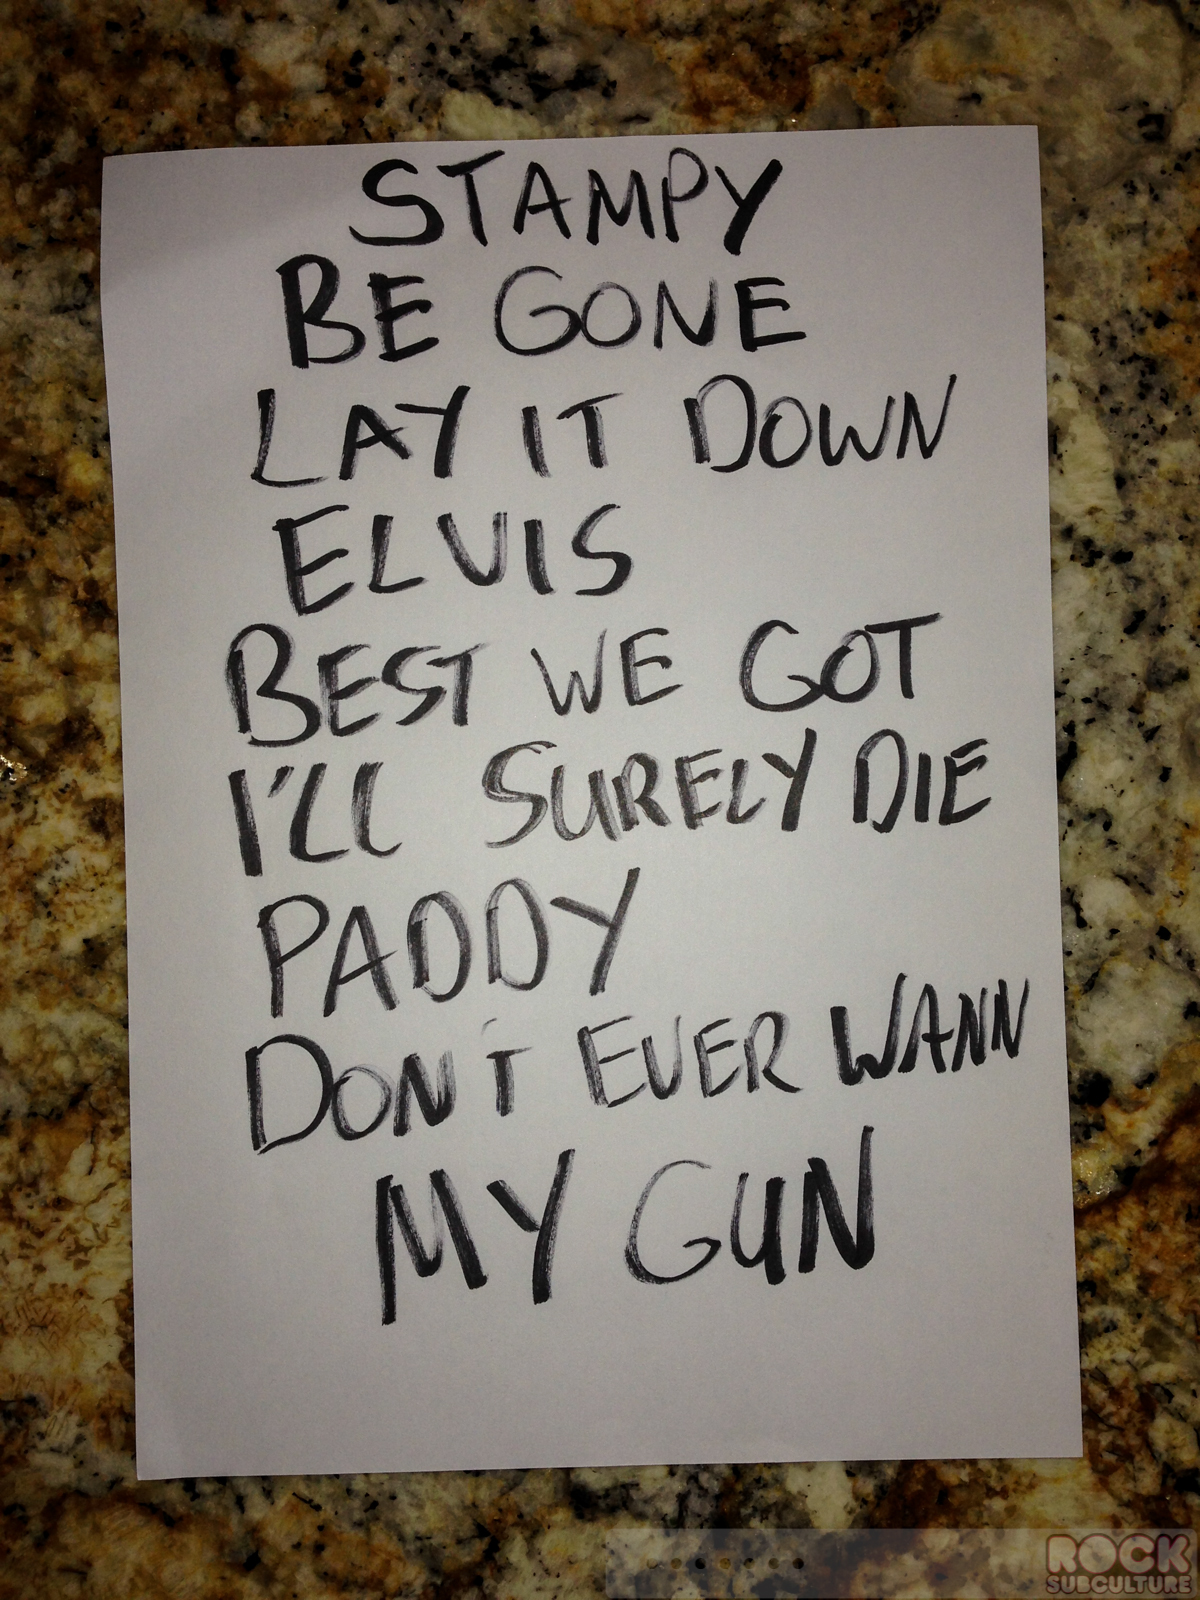 STAMPY
BE GONE
LAY IT DOWN
ELVIS
BEST WE GOT
I'LL SURELY DIE
PADDY
DON'T EVER WANN
MY GUN
ROCK
SUBCULTURE